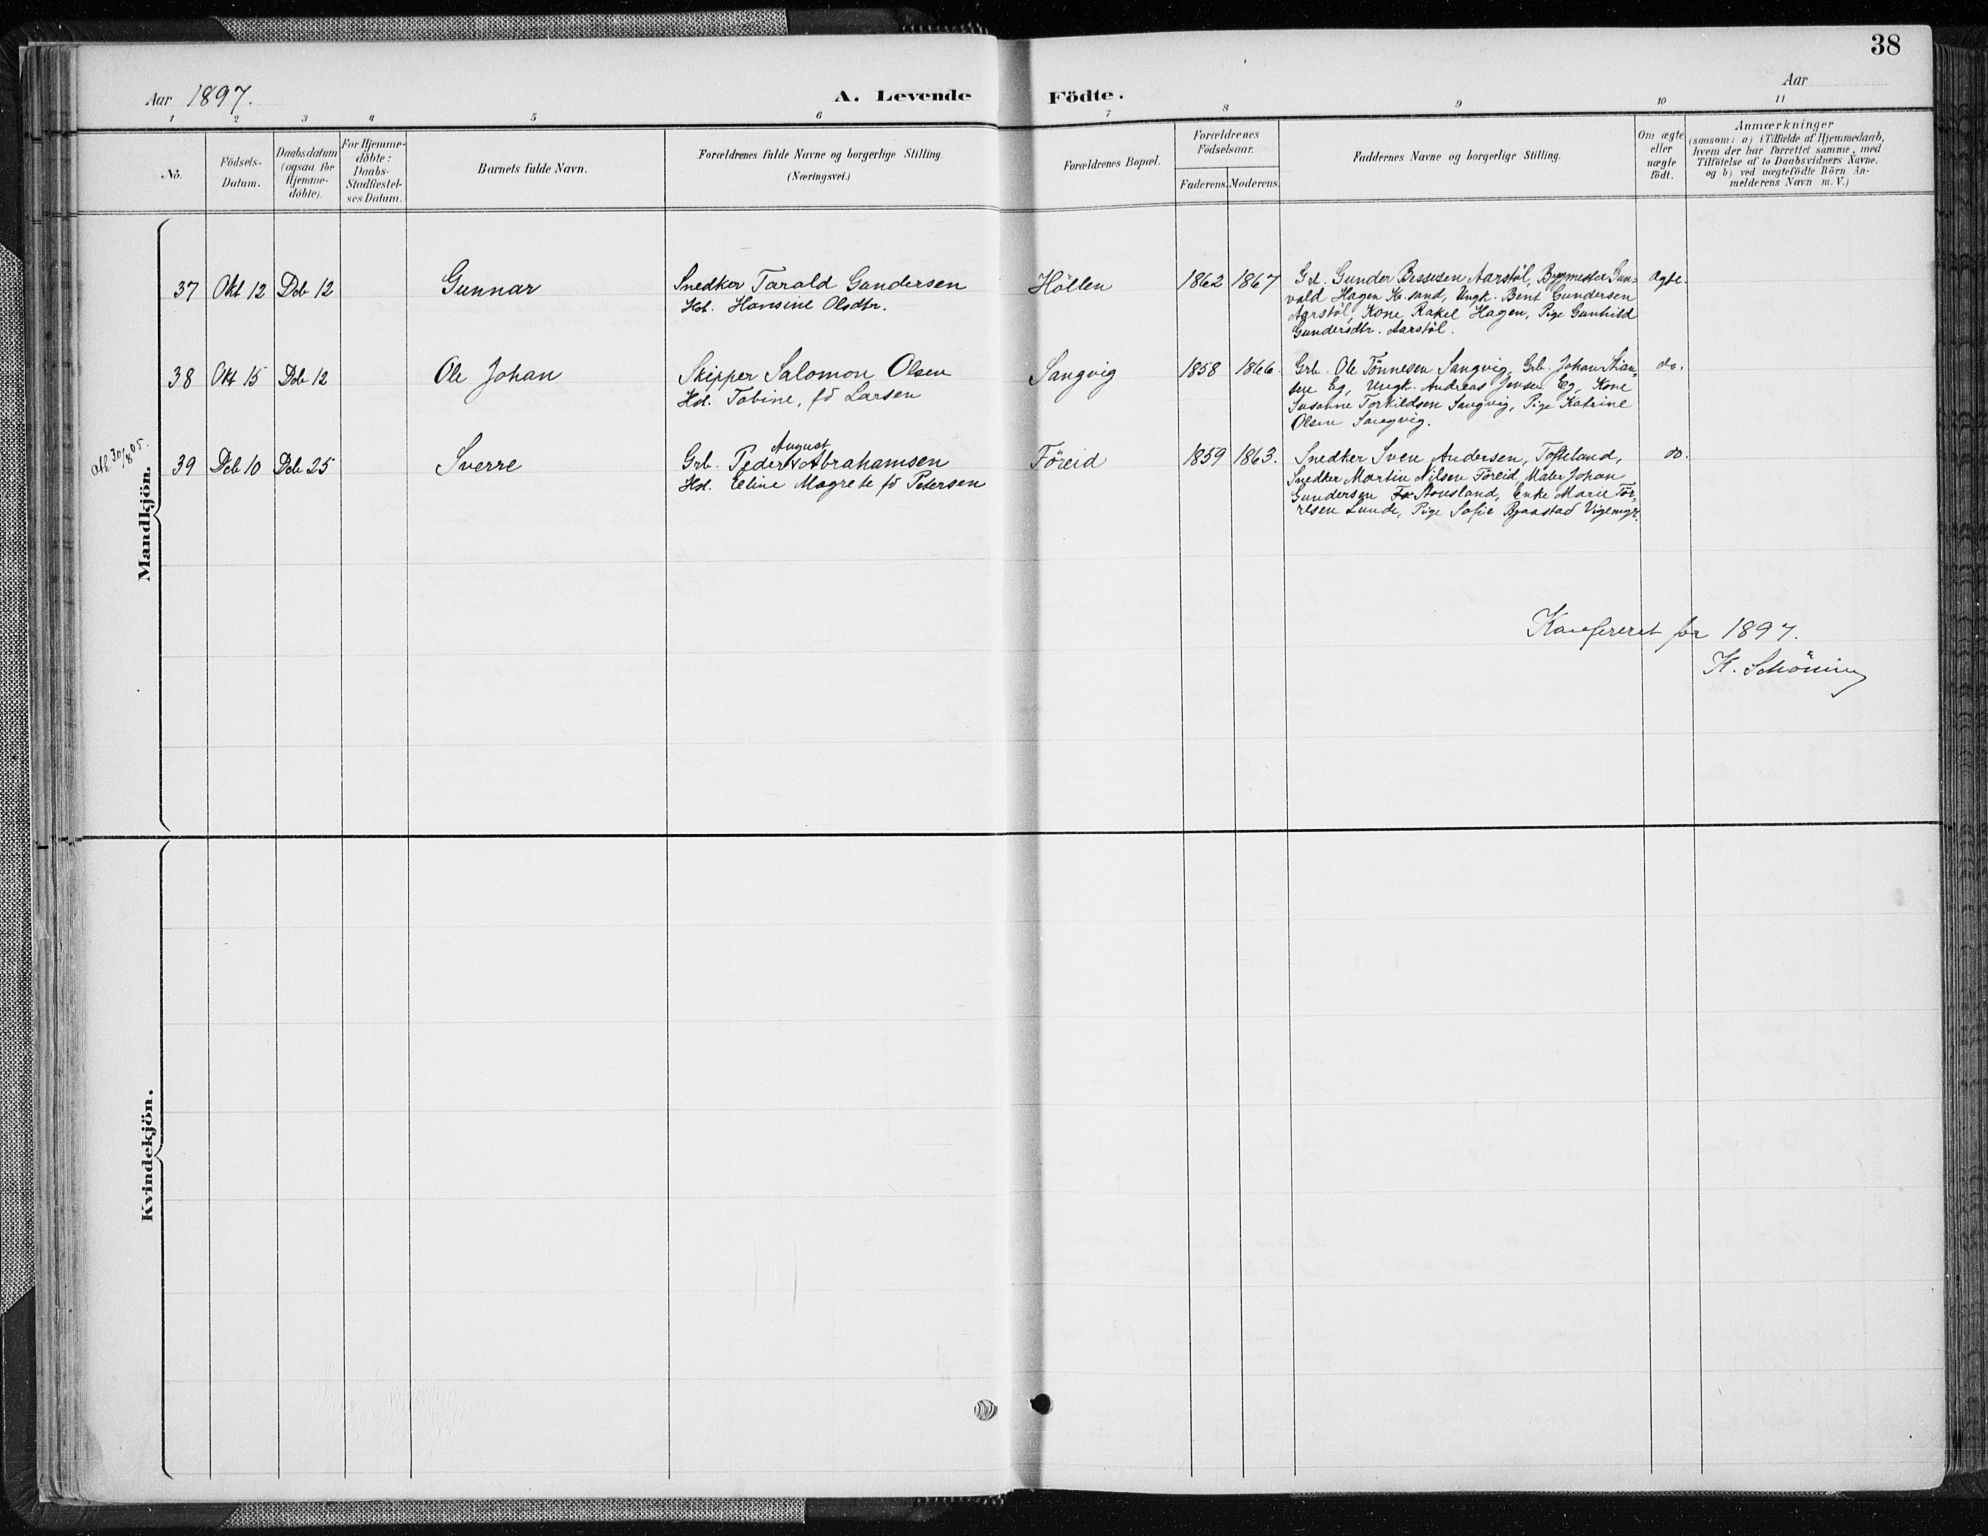 38
Aar 1897.
A. Levende Födte.
Aar
1 2 3 4 5 6 7 8 9 10 11
No.
Födsels-
Datum.
Daabsdatum
(ogsaa for
Hjemme-
döbte).
For Hjemme-
döbte:
Daabs-
Stadfæstel-
ses Datum.
Barnets fulde Navn.
Forældrenes fulde Navne og borgerlige Stilling.
(Næringsvei.)
Forældrenes Bopæl.
Forældrenes
Födselsaar.
Faderens. Moderens.
Faddernes Navne og borgerlige Stilling.
Om ægte
eller
uægte
födt.
Anmærkninger
(saasom: a) i Tilfælde af Hjemmedaab,
hvem der har forrettet samme, med
Tilföielse af to Daabsvidners Navne,
og b) ved uægtefödte Börn An-
melderens Navn m. V.)
Mandkjön.
37 Okt 12 Deb 12
Gunnar
Snedker Tarald Gundersen
Hst. Hansine Olsdtr.
Höllen
1862 1867
Grb. Gunder Aarstöl, Gun-
vald Hagen K.sand, Ungk. Bent Gundersen
Aarstöl, Kone Rakel Hagen, Pige Gunhild
Gundersdtr. Aarstöl.
Ægte.
38 Okt 15 Deb 12
Ole Johan
Skipper Salomon Olsen
Hst. Tobine, fö Larsen
Sangvig
1858 1866.
Grb. Ole Tönnesen Sangvig, Grb. Johan
sen Eg, Ungk. Andreas Jensen Eg, Kone
Susanne Torkildsen Sangvig, Pige Katrine
Olsen Sangvig.
do.
Att. 30/8 05.
39 Deb 10 Deb 25
Sverre
August
Grb. Peder Abrahamsen
Hst. Eline Magrete fö Petersen
Föreid
1859 1863.
Snedker Sven Andersen, Tofteland,
Snedker Martin Nilsen Föreid, Maler Johan
Gundersen Stousland, Enke Marie Tör-
resen Lunde, Pige Sofie Vigemyr.
do.
Konfereret for 1897.
K. Schöning
Kvindekjön.